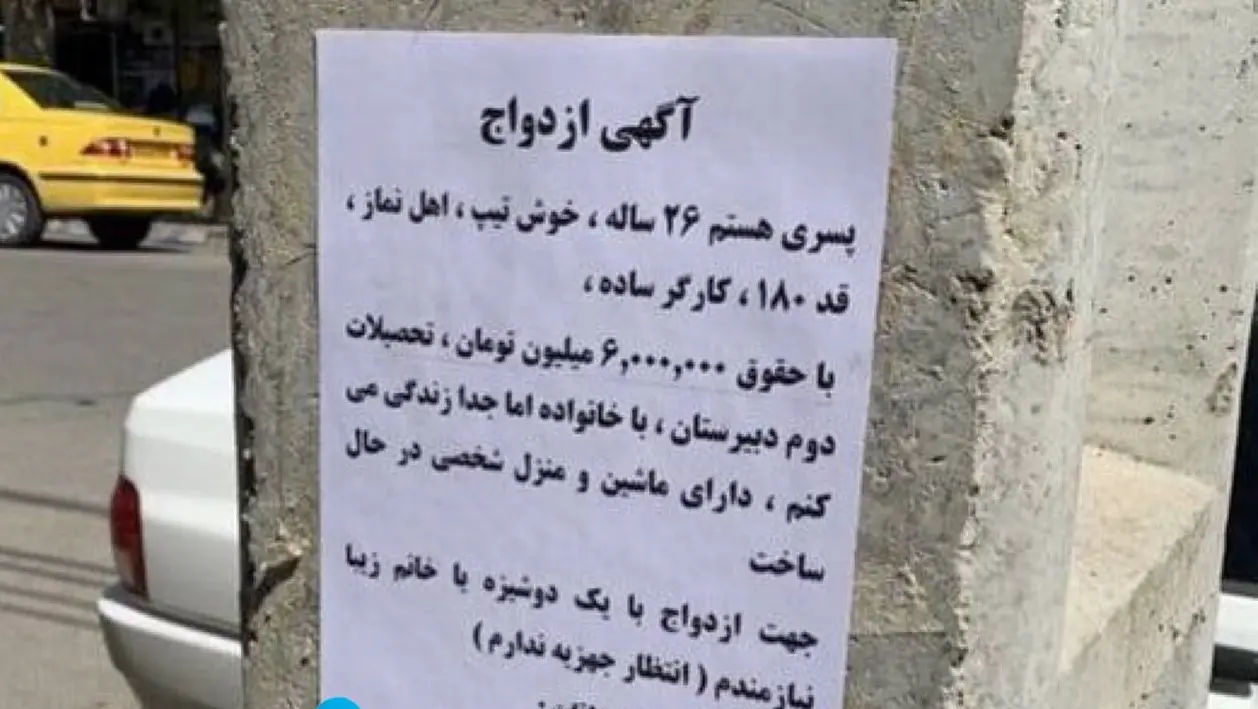 آگهی ازدواج
پسری هستم ۲۶ ساله ، خوش تیپ ، اهل نماز ،
قد ۱۸۰ ، کارگر ساده ،
با حقوق ۶,۰۰۰,۰۰۰ میلیون تومان ، تحصیلات
دوم دبیرستان ، با خانواده اما جدا زندگی می
کنم ، دارای ماشین و منزل شخصی در حال
ساخت
جهت ازدواج با یک دوشیزه یا خانم زیبا
نیازمندم ( انتظار جهزیه ندارم )